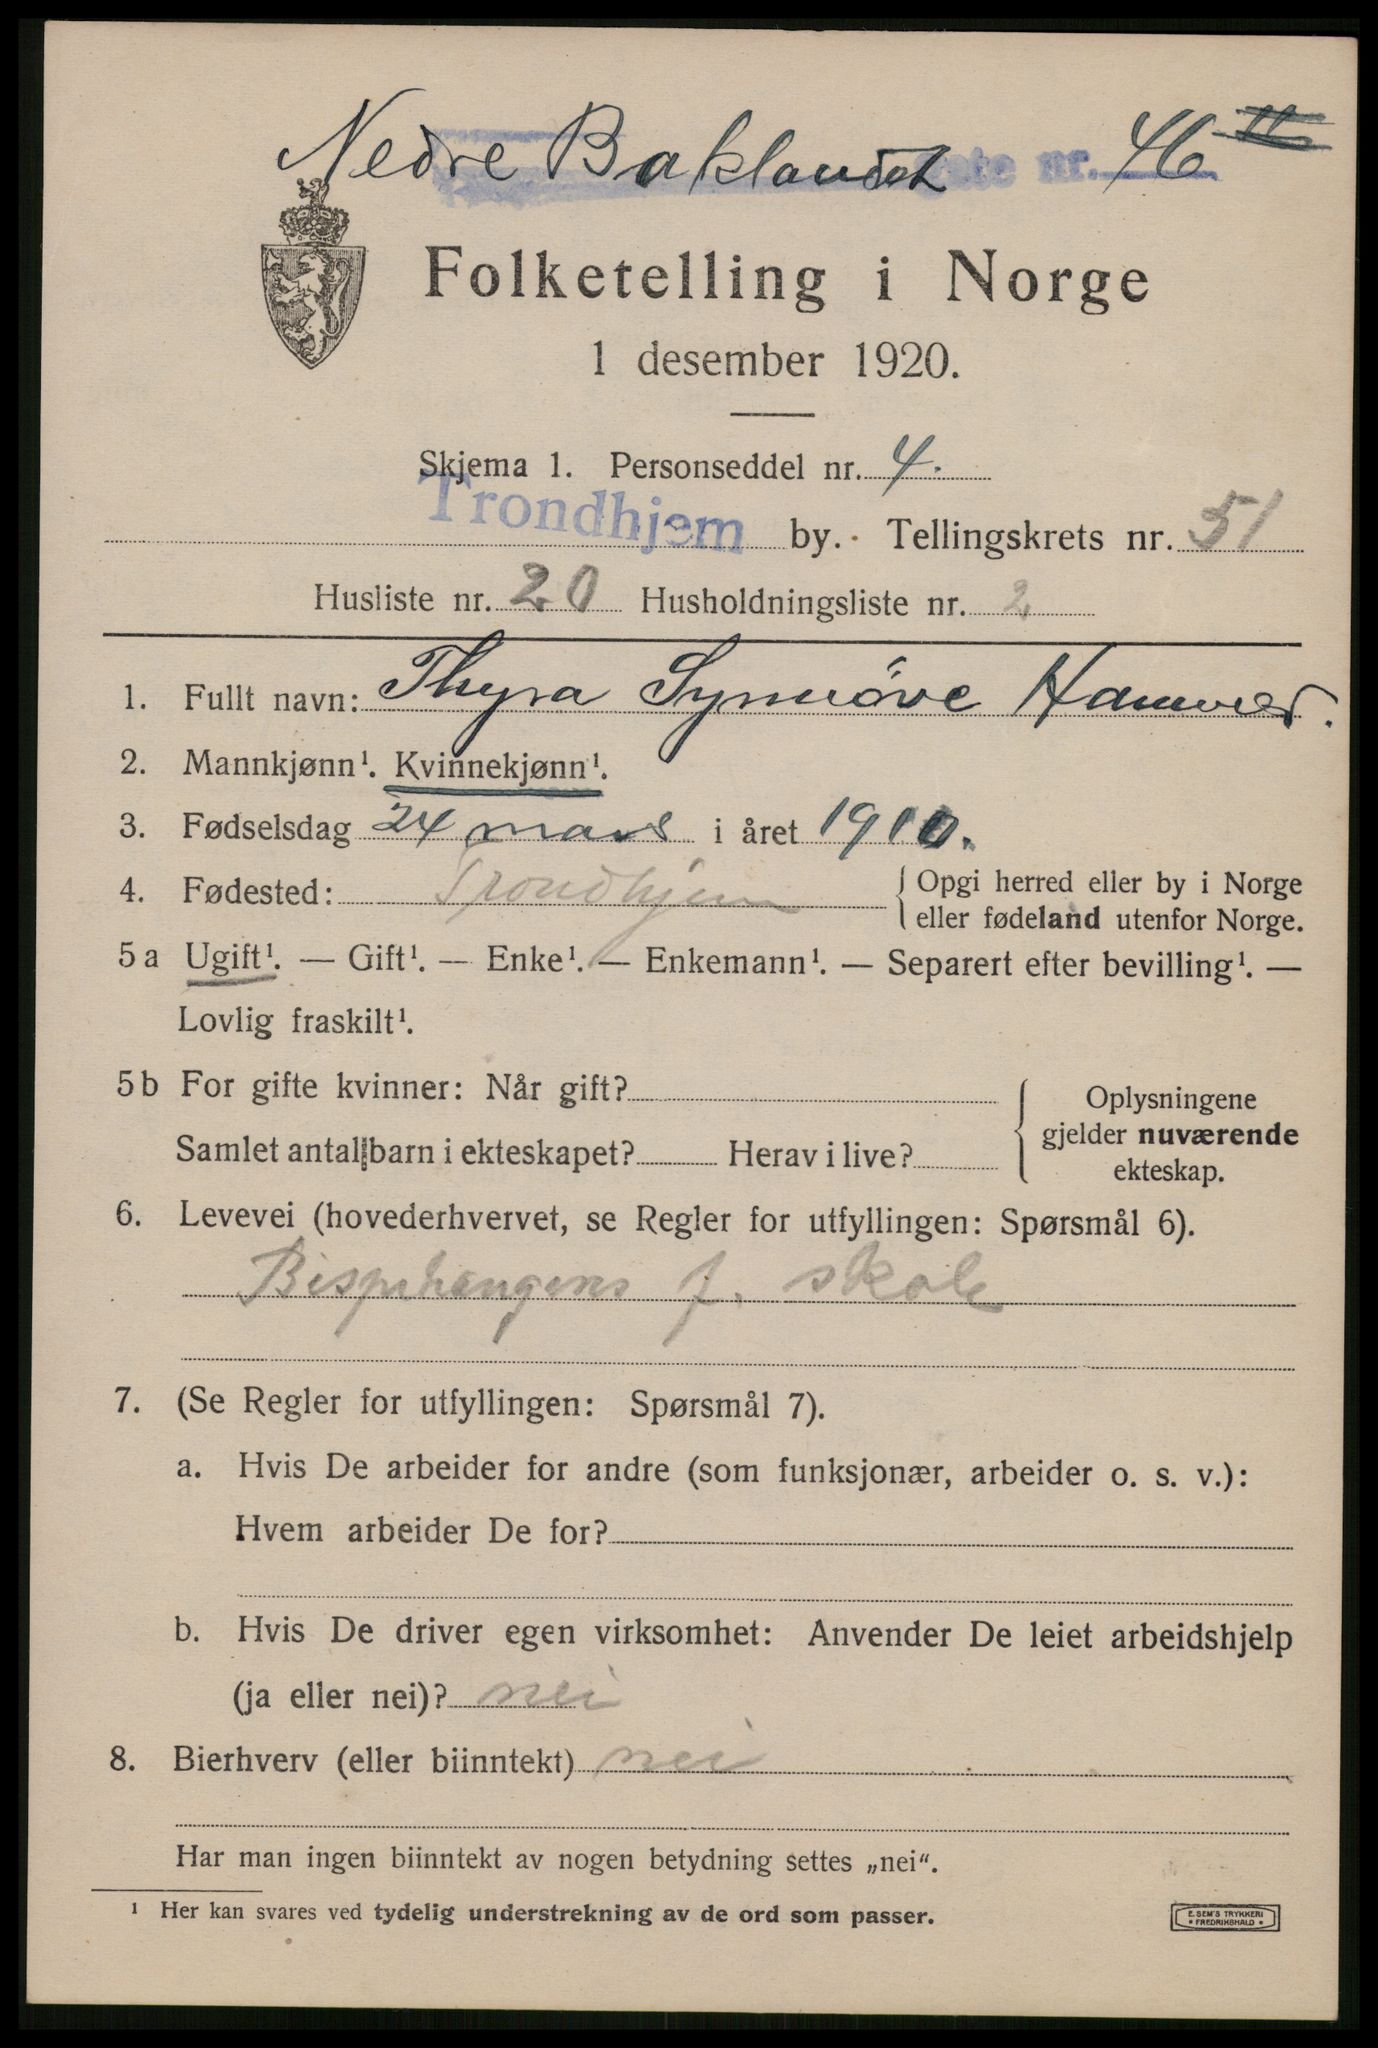 Nedre Baklandet gate nr. 46
Folketelling i Norge
1 desember 1920.
Skjema 1. Personseddel nr. 4.
Trondhjem by. Tellingskrets nr. 51
Husliste nr. 20 Husholdningsliste nr. 2
1. Fullt navn: Thyra Synnöve Hammer.
2. Mannkjønn¹. Kvinnekjønn¹.
3. Fødselsdag 24 mars i året 1910.
4. Fødested: Trondhjem { Opgi herred eller by i Norge
eller fødeland utenfor Norge.
5 a Ugift¹. — Gift¹. — Enke¹. — Enkemann¹. — Separert efter bevilling¹. —
Lovlig fraskilt¹.
5 b For gifte kvinner: Når gift?
Samlet antal barn i ekteskapet? Herav i live?
Oplysningene
gjelder nuværende
ekteskap.
6. Levevei (hovederhvervet, se Regler for utfyllingen: Spørsmål 6).
Bispehaugens f. skole
7. (Se Regler for utfyllingen: Spørsmål 7).
a. Hvis De arbeider for andre (som funksjonær, arbeider o. s. v.):
Hvem arbeider De for?
b. Hvis De driver egen virksomhet: Anvender De leiet arbeidshjelp
(ja eller nei)? nei
8. Bierhverv (eller biinntekt) nei
Har man ingen biinntekt av nogen betydning settes „nei“.
¹ Her kan svares ved tydelig understrekning av de ord som passer.
E. SEM'S TRYKKERI
• FREDRIKSHALD •